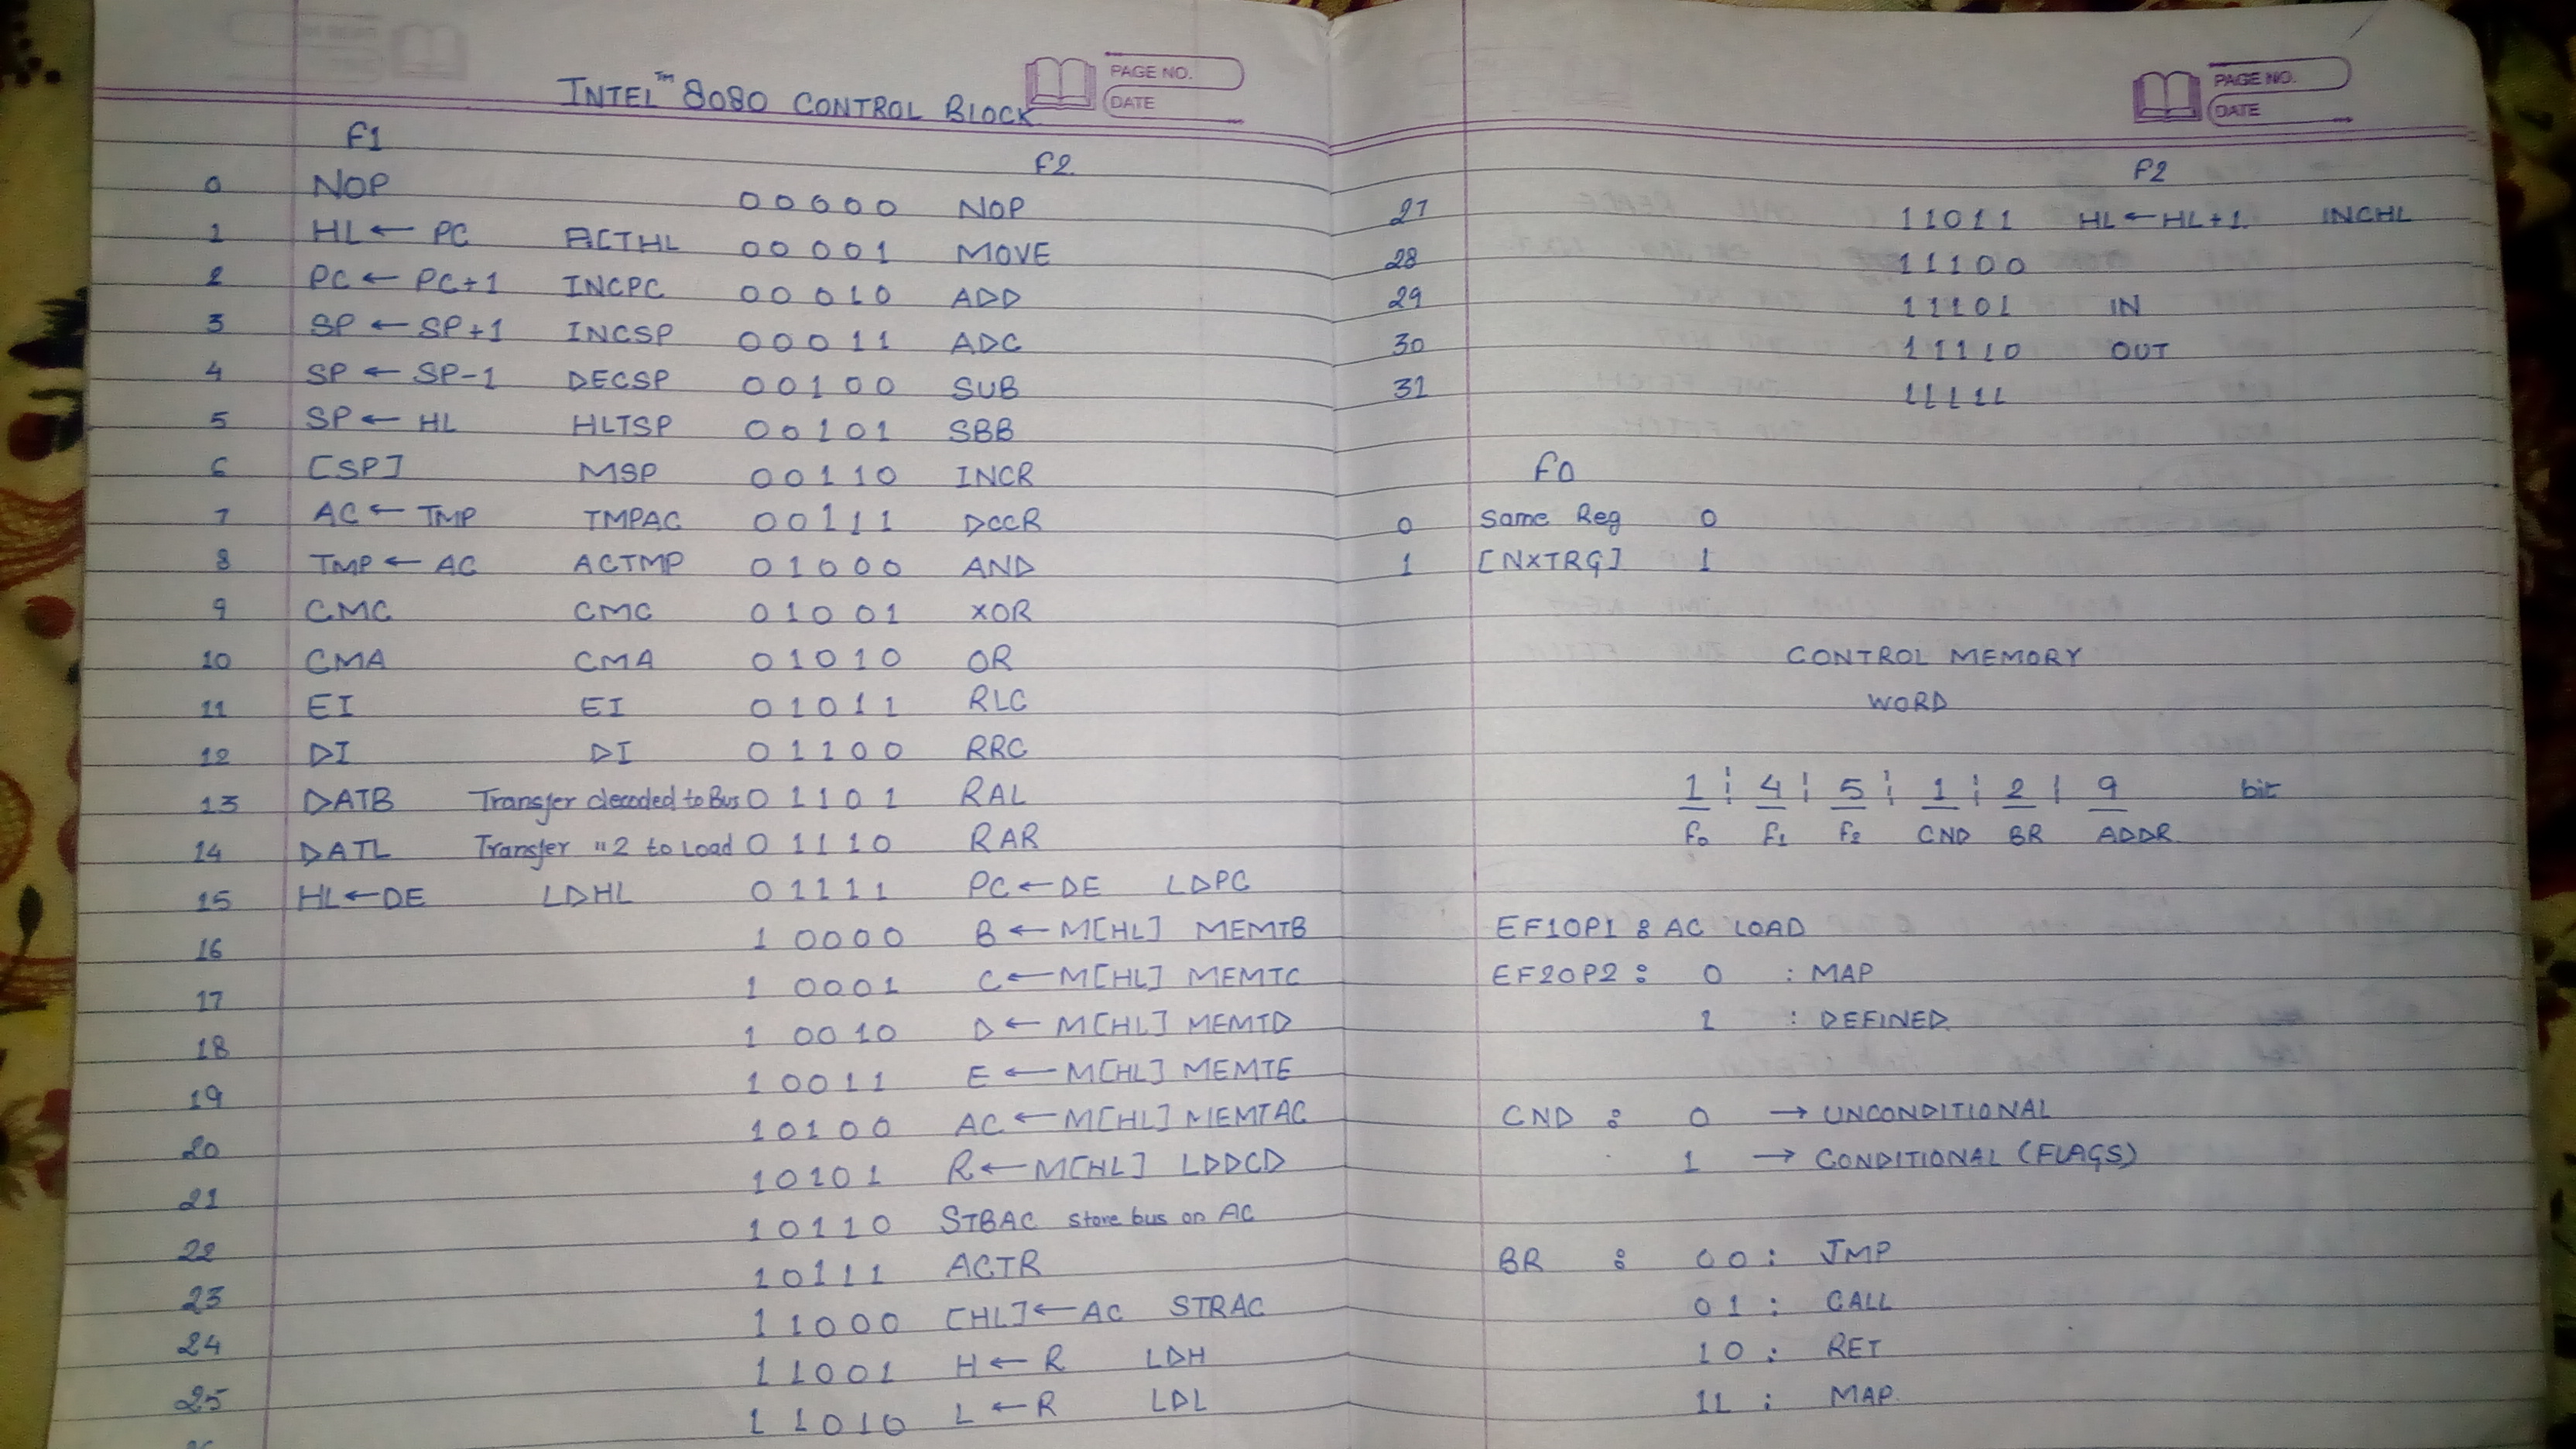 INTEL™ 8080 CONTROL BLOCK
PAGE NO.
DATE
F1
F2
0 NOP 00000 NOP
1 HL ← PC ACTHL 00001 MOVE
2 PC ← PC+1 INCPC 00010 ADD
3 SP ← SP+1 INCSP 00011 ADC
4 SP ← SP-1 DECSP 00100 SUB
5 SP ← HL HLTSP 00101 SBB
6 [SP] MSP 00110 INCR
7 AC ← TMP TMPAC 00111 DCCR
8 TMP ← AC ACTMP 01000 AND
9 CMC CMC 01001 XOR
10 CMA CMA 01010 OR
11 EI EI 01011 RLC
12 DI DI 01100 RRC
13 DATB Transfer decoded to Bus 01101 RAL
14 DATL Transfer "2 to Load 01110 RAR
15 HL←DE LDHL 01111 PC←DE LDPC
16 10000 B ← M[HL] MEMTB
17 10001 C ← M[HL] MEMTC
18 10010 D ← M[HL] MEMTD
19 10011 E ← M[HL] MEMTE
20 10100 AC ← M[HL] MEMTAC
21 10101 R ← M[HL] LDDCD
22 10110 STBAC store bus on AC
23 10111 ACTR
24 11000 [HL] ← AC STRAC
25 11001 H ← R LDH
11010 L ← R LDL
PAGE NO.
DATE
F2
27 11011 HL ← HL+1 INCHL
28 11100
29 11101 IN
30 11110 OUT
31 11111
F0
0 Same Reg 0
1 [NXTRG] 1
CONTROL MEMORY
WORD
1 ¦ 4 ¦ 5 ¦ 1 ¦ 2 ¦ 9 bit
F0 F1 F2 CND BR ADDR
EF1OP1 : AC LOAD
EF2OP2 : 0 : MAP
1 : DEFINED
CND : 0 → UNCONDITIONAL
1 → CONDITIONAL (FLAGS)
BR : 00 : JMP
01 : CALL
10 : RET
11 : MAP